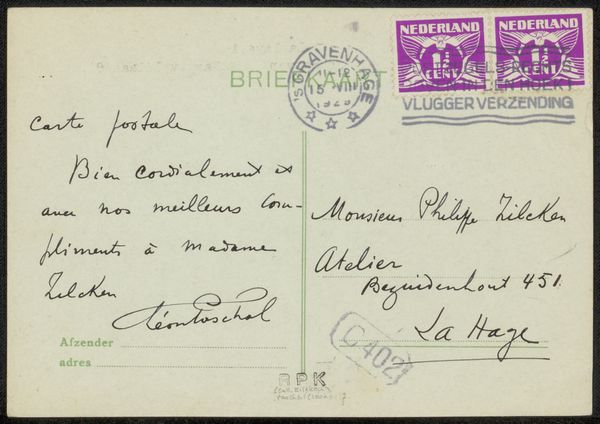 NEDERLAND NEDERLAND
1½ 1½
CENT CENT
BRIEFKAART
'S GRAVENHAGE
15 VIII
VLUGGER VERZENDING
carte postale
Bien cordialement et
avec nos meilleurs com-
pliments à Madame
Zilcken
Léon Paschal
Afzender
adres
Monsieur Philippe Zilcken
Atelier
Bezuidenhout 451.
La Haye
C402
RPK